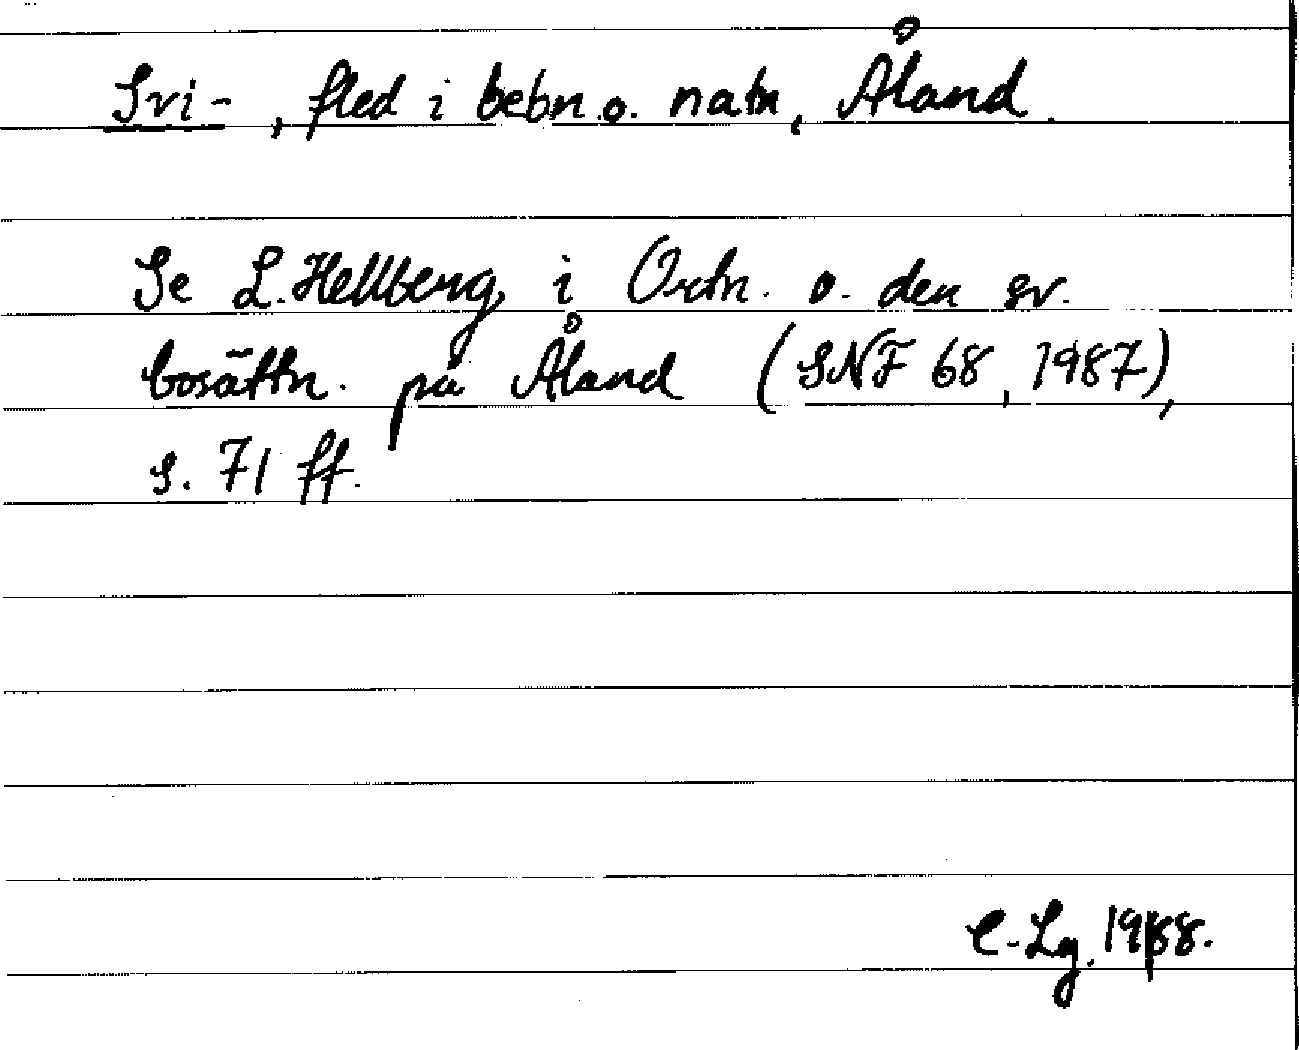 Svi-, fled i bebn. o. natn, Åland.
Se L. Hellberg, i Ortn. o. den sv.
bosättn. på Åland (SNF 68, 1987),
s. 71 ff.
C-Lg. 1988.